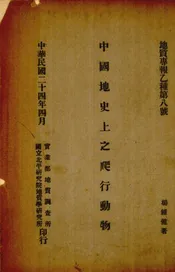 地質專報乙種第八號
楊鍾健著
中國地史上之爬行動物
實業部地質調查所
國立北平研究院地質學研究所
印行
中華民國二十四年四月